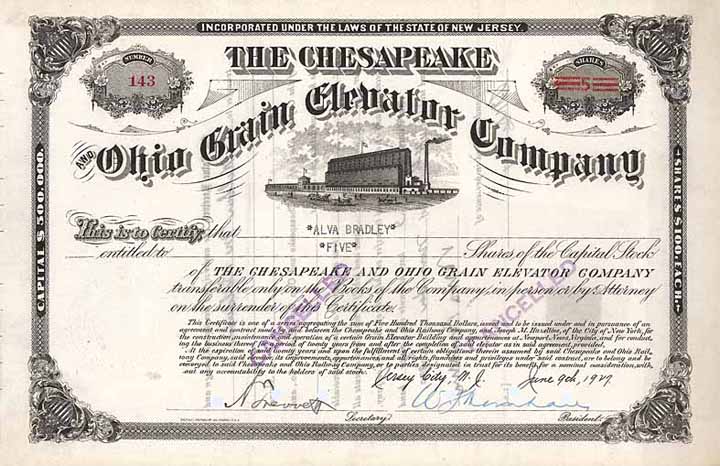 INCORPORATED UNDER THE LAWS OF THE STATE OF NEW JERSEY.
NUMBER
143
SHARES
5
THE CHESAPEAKE
AND Ohio Grain Elevator Company
CAPITAL $500,000.
SHARES $100, EACH.
This is to Certify, that *ALVA BRADLEY*
entitled to *FIVE* Shares of the Capital Stock
of THE CHESAPEAKE AND OHIO GRAIN ELEVATOR COMPANY
transferable only on the Books of the Company, in person or by Attorney
on the surrender of this Certificate.
This Certificate is one of a series aggregating the sum of Five Hundred Thousand Dollars, issued and to be issued under and in pursuance of an
agreement and contract made by and between the Chesapeake and Ohio Railway Company, and Joseph M. Hazeltine, of the City of New York, for
the construction, maintenance and operation of a certain Grain Elevator Building and appurtenances at Newport News, Virginia, and for conduct-
ing the business thereof for a period of twenty years from and after the completion of said elevator as in said agreement, provided.
At the expiration of said twenty years and upon the fulfillment of certain obligations therein assumed by said Chesapeake and Ohio Rail-
way Company, said elevator, its improvements, appurtenances, and all rights, franchises and privileges under said contract, are to belong and be
conveyed to said Chesapeake and Ohio Railway Company, or to parties designated in trust for its benefit, for a nominal consideration, with-
out any accountability to the holders of said stock.
Jersey City, N. J. June 9th, 19
Secretary.
President.
CANCELLED
CANCELLED